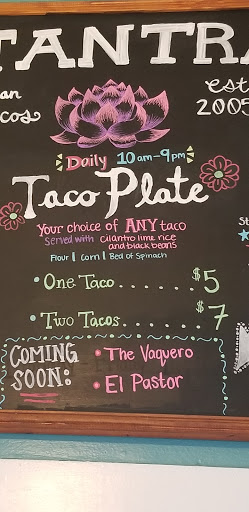 TANTRA
an
cos
est
2005
Daily 10am-9pm
Taco Plate
Your choice of ANY taco
Served with cilantro lime rice
and black beans
Flour | Corn | Bed of Spinach
• One Taco . . . . . . $5
• Two Tacos . . . . . $7
COMING
SOON:
• The Vaquero
• El Pastor